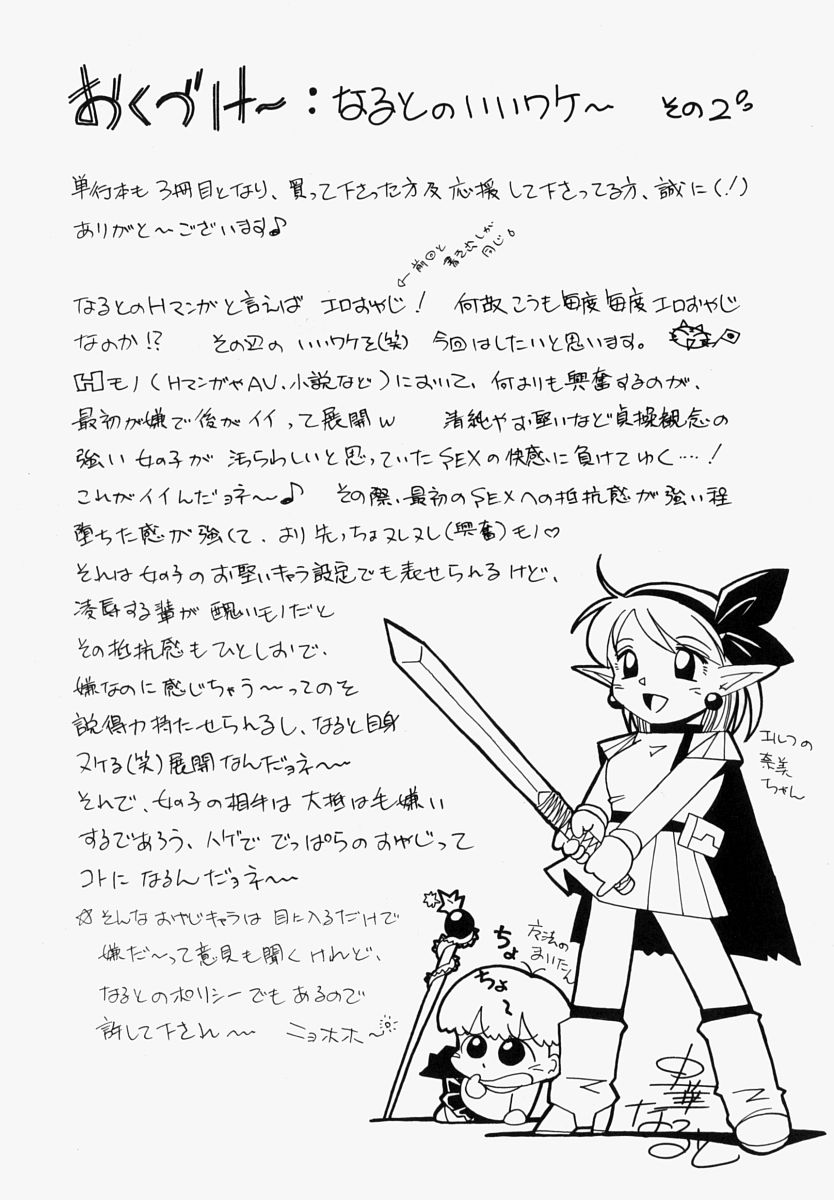 おくづけ〜：なるとのいいワケ〜 その2。
単行本も3冊目となり、買って下さった方及応援して下さってる方、誠に(！)
ありがと〜ございます♪
←前回と
書き出しが
同じ。
なるとのHマンガと言えば エロおやじ！ 何故こうも毎度毎度エロおやじ
なのか!? その辺のいいワケを(笑) 今回はしたいと思います。
Hモノ(HマンガやAV、小説など)において、何よりも興奮するのが、
最初が嫌で後がイイって展開w 清純やお堅いなど貞操観念の
強い女の子が汚らわしいと思っていたSEXの快感に負けてゆく…！
これがイイんだョネ〜♪ その際、最初のSEXへの抵抗感が強い程
堕ちた感が強くて、より先っちょヌレヌレ(興奮)モノ♡
それは女の子のお堅いキャラ設定でも表せられるけど、
凌辱する輩が醜いモノだと
その抵抗感もひとしおで、
嫌なのに感じちゃう〜ってのを
説得力持たせられるし、なると自身
ヌケる(笑)展開なんだョネ〜
それで、女の子の相手は大抵は毛嫌い
するであろう、ハゲででっぱらのおやじって
コトになるんだョネ〜
☆そんなおやじキャラは目に入るだけで
嫌だ〜って意見も聞くけれど、
なるとのポリシーでもあるので
許して下され〜 ニョホホ〜
エルフの
奈美
ちゃん
魔法の
まいたん
ちょ
ちょ〜
中華
なると